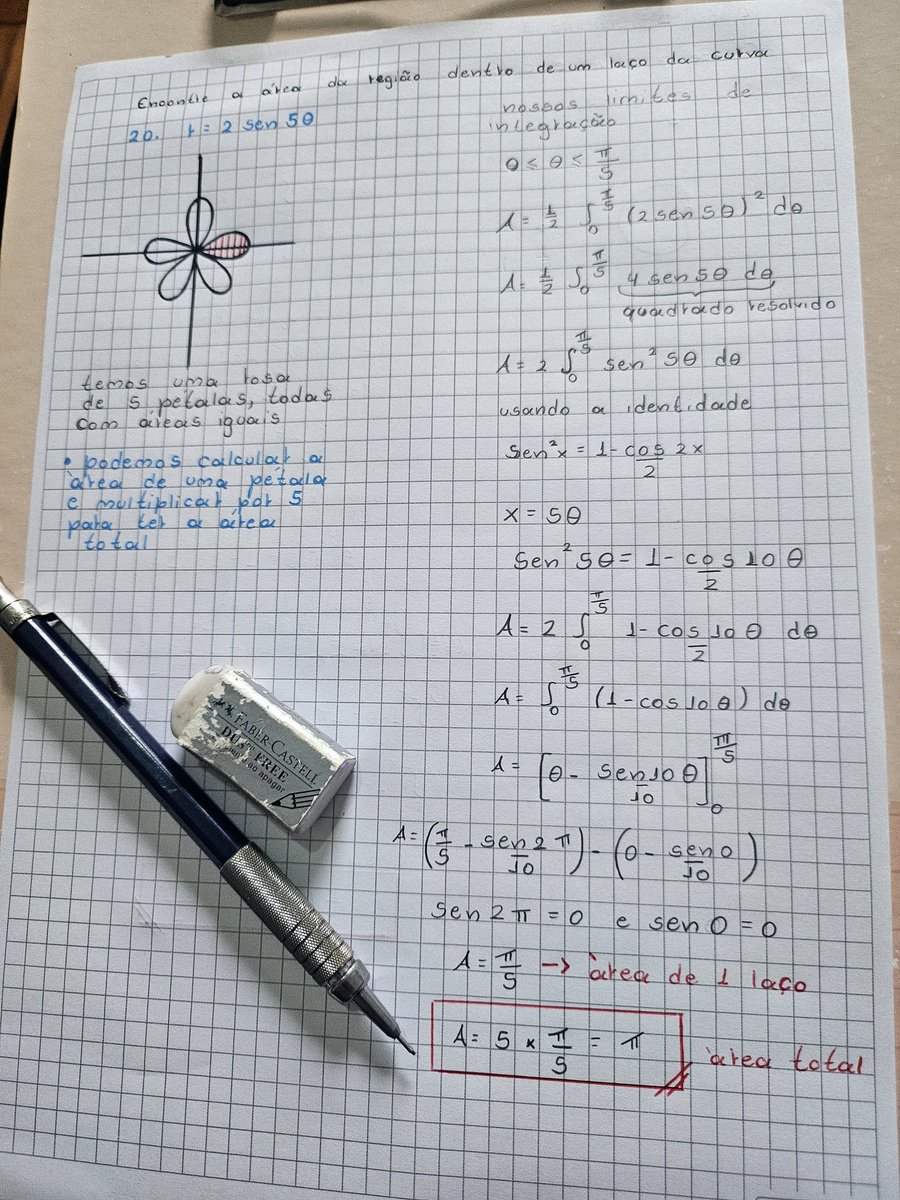 Encontre a área da região dentro de um laço da curva
20. r = 2 sen 5θ
temos uma rosa
de 5 pétalas, todas
com áreas iguais
• podemos calcular a
área de uma pétala
e multiplicar por 5
para ter a área
total
nossos limites de
integração
0 ≤ θ ≤ π/5
A = 1/2 ∫₀^(π/5) (2 sen 5θ)² dθ
A = 1/2 ∫₀^(π/5) 4 sen 5θ dθ
quadrado resolvido
A = 2 ∫₀^(π/5) sen² 5θ dθ
usando a identidade
sen²x = 1 - cos 2x / 2
x = 5θ
sen² 5θ = 1 - cos 10θ / 2
A = 2 ∫₀^(π/5) 1 - cos 10θ / 2 dθ
A = ∫₀^(π/5) (1 - cos 10θ) dθ
A = [θ - sen 10θ / 10]₀^(π/5)
A = (π/5 - sen 2π / 10) - (0 - sen 0 / 10)
sen 2π = 0 e sen 0 = 0
A = π/5 → área de 1 laço
A = 5 × π/5 = π área total
FABER-CASTELL
DUST-FREE